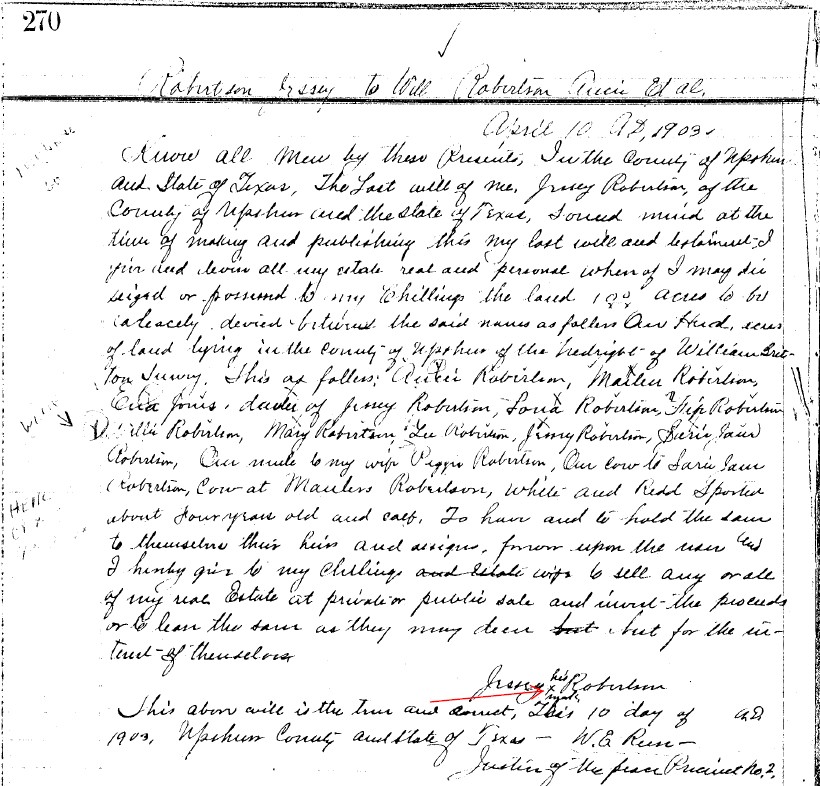 270
Robertson Jessey to Will Robertson Aucie Et al.
April 10 AD, 1903.
Know all Men by these Presents, In the County of Upshur
and State of Texas, The Last will of me, Jessey Robertson, of the
County of Upshur and the State of Texas, Sound mind at the
time of making and publishing this my last will and testament I
give and devise all my estate real and personal when of I may die
seized or possessed to my Chillings the land 100 acres to be
devied between the said names as follers One Hud, acres
of land lying in the County of Upshur of the hedright of William Brit-
ton Survey. This as follers; Robertson, Robertson,
Jones, of Jessey Robertson, Robertson, Robertson
Willie Robertson, Mary Robertson Lee Robertson, Jessey Robertson, Surie Jane
Robertson, One mule to my wife Peggie Robertson, One cow to Sarie Jane
Robertson, Cow at Maulers Robertson, white and Redd Sported
about four years old and calf. To have and to hold the same
to themselves their heirs and assigns, forever upon the user and
I hereby give to my Chillings and Estate wife to sell any or all
of my real Estate at private or public sale and invest the proceeds
or to lean the same as they may deem but best for the in-
terest of themselves
Jessey his x mark Robertson
This above will is the true and correct, This 10 day of AD
1903, Upshur County and State of Texas — W.E. —
Justice of the peace Precinct No. 2.